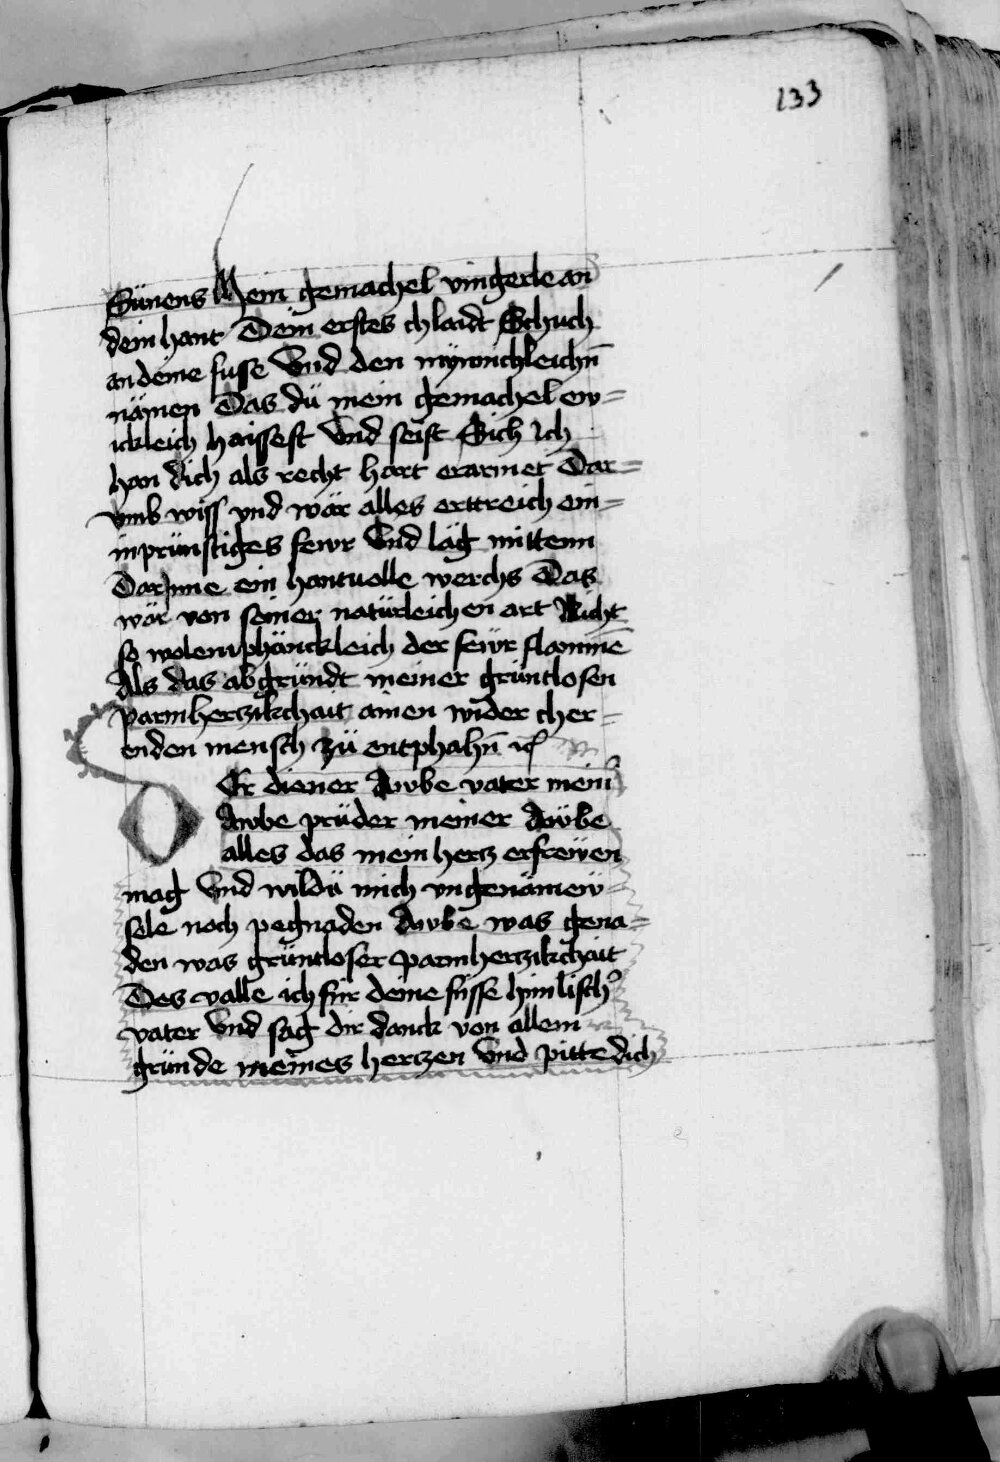 133
Sünens Mein gemachel vingerle an
dein hant Dein erstes chlaidt Schuch
an deine fusse Vnd den mynnichleichn̄
nämen Das dü mein gemachel ew=
ickleich haissest Vnd seist Sich Ich
han dich als recht hart erarnet Dar=
vmb wiss vnd wär alles erttreich ein=
inprünstiges fewr Vnd läg mittenn
Darynne ein hantuolle werchs Das
wär von seiner natürleichen art Nicht
so wol emphänckleich der fewr flammē
Als das abgründt meiner grüntlosen
parmhertzikchait ainen wider cher=
enden mensch zü entphahn̄ ꝛc
Er diener Awbe vater mein̉
Awbe prüder meiner Awbe
alles das mein hertz erfrewen
mag Vnd wildü mich vngenämew=
sele noch pegnaden Awbe was gena=
den was grüntloser parmhertzikchait
Des valle ich für deine füsse himlisch̉
vater Vnd sag dir danck von allem
gründe meines hertzen Vnd pitte dich